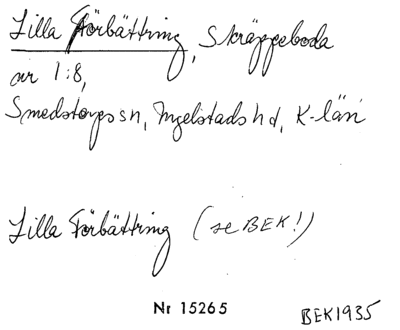 Lilla Förbättring, Skräppeboda
nr 1:8,
Smedstorps sn, Ingelstads hd, K-län
Lilla Förbättring (se BEK!)
Nr 15265
BEK1935